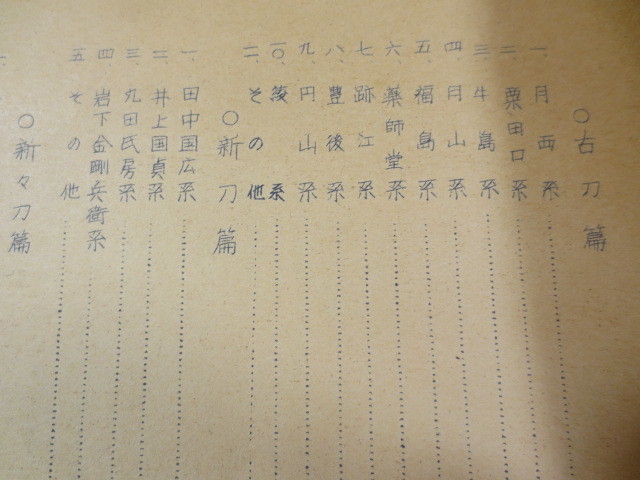 ○古刀篇
一、月西系
二、粟田口系
三、牛島系
四、月山系
五、福島系
六、薬師堂系
七、跡江系
八、豊後系
九、円山系
一〇、後系
二、その他
○新刀篇
一、田中国広系
二、井上国貞系
三、丸田氏房系
四、岩下金剛兵衛系
五、その他
○新々刀篇